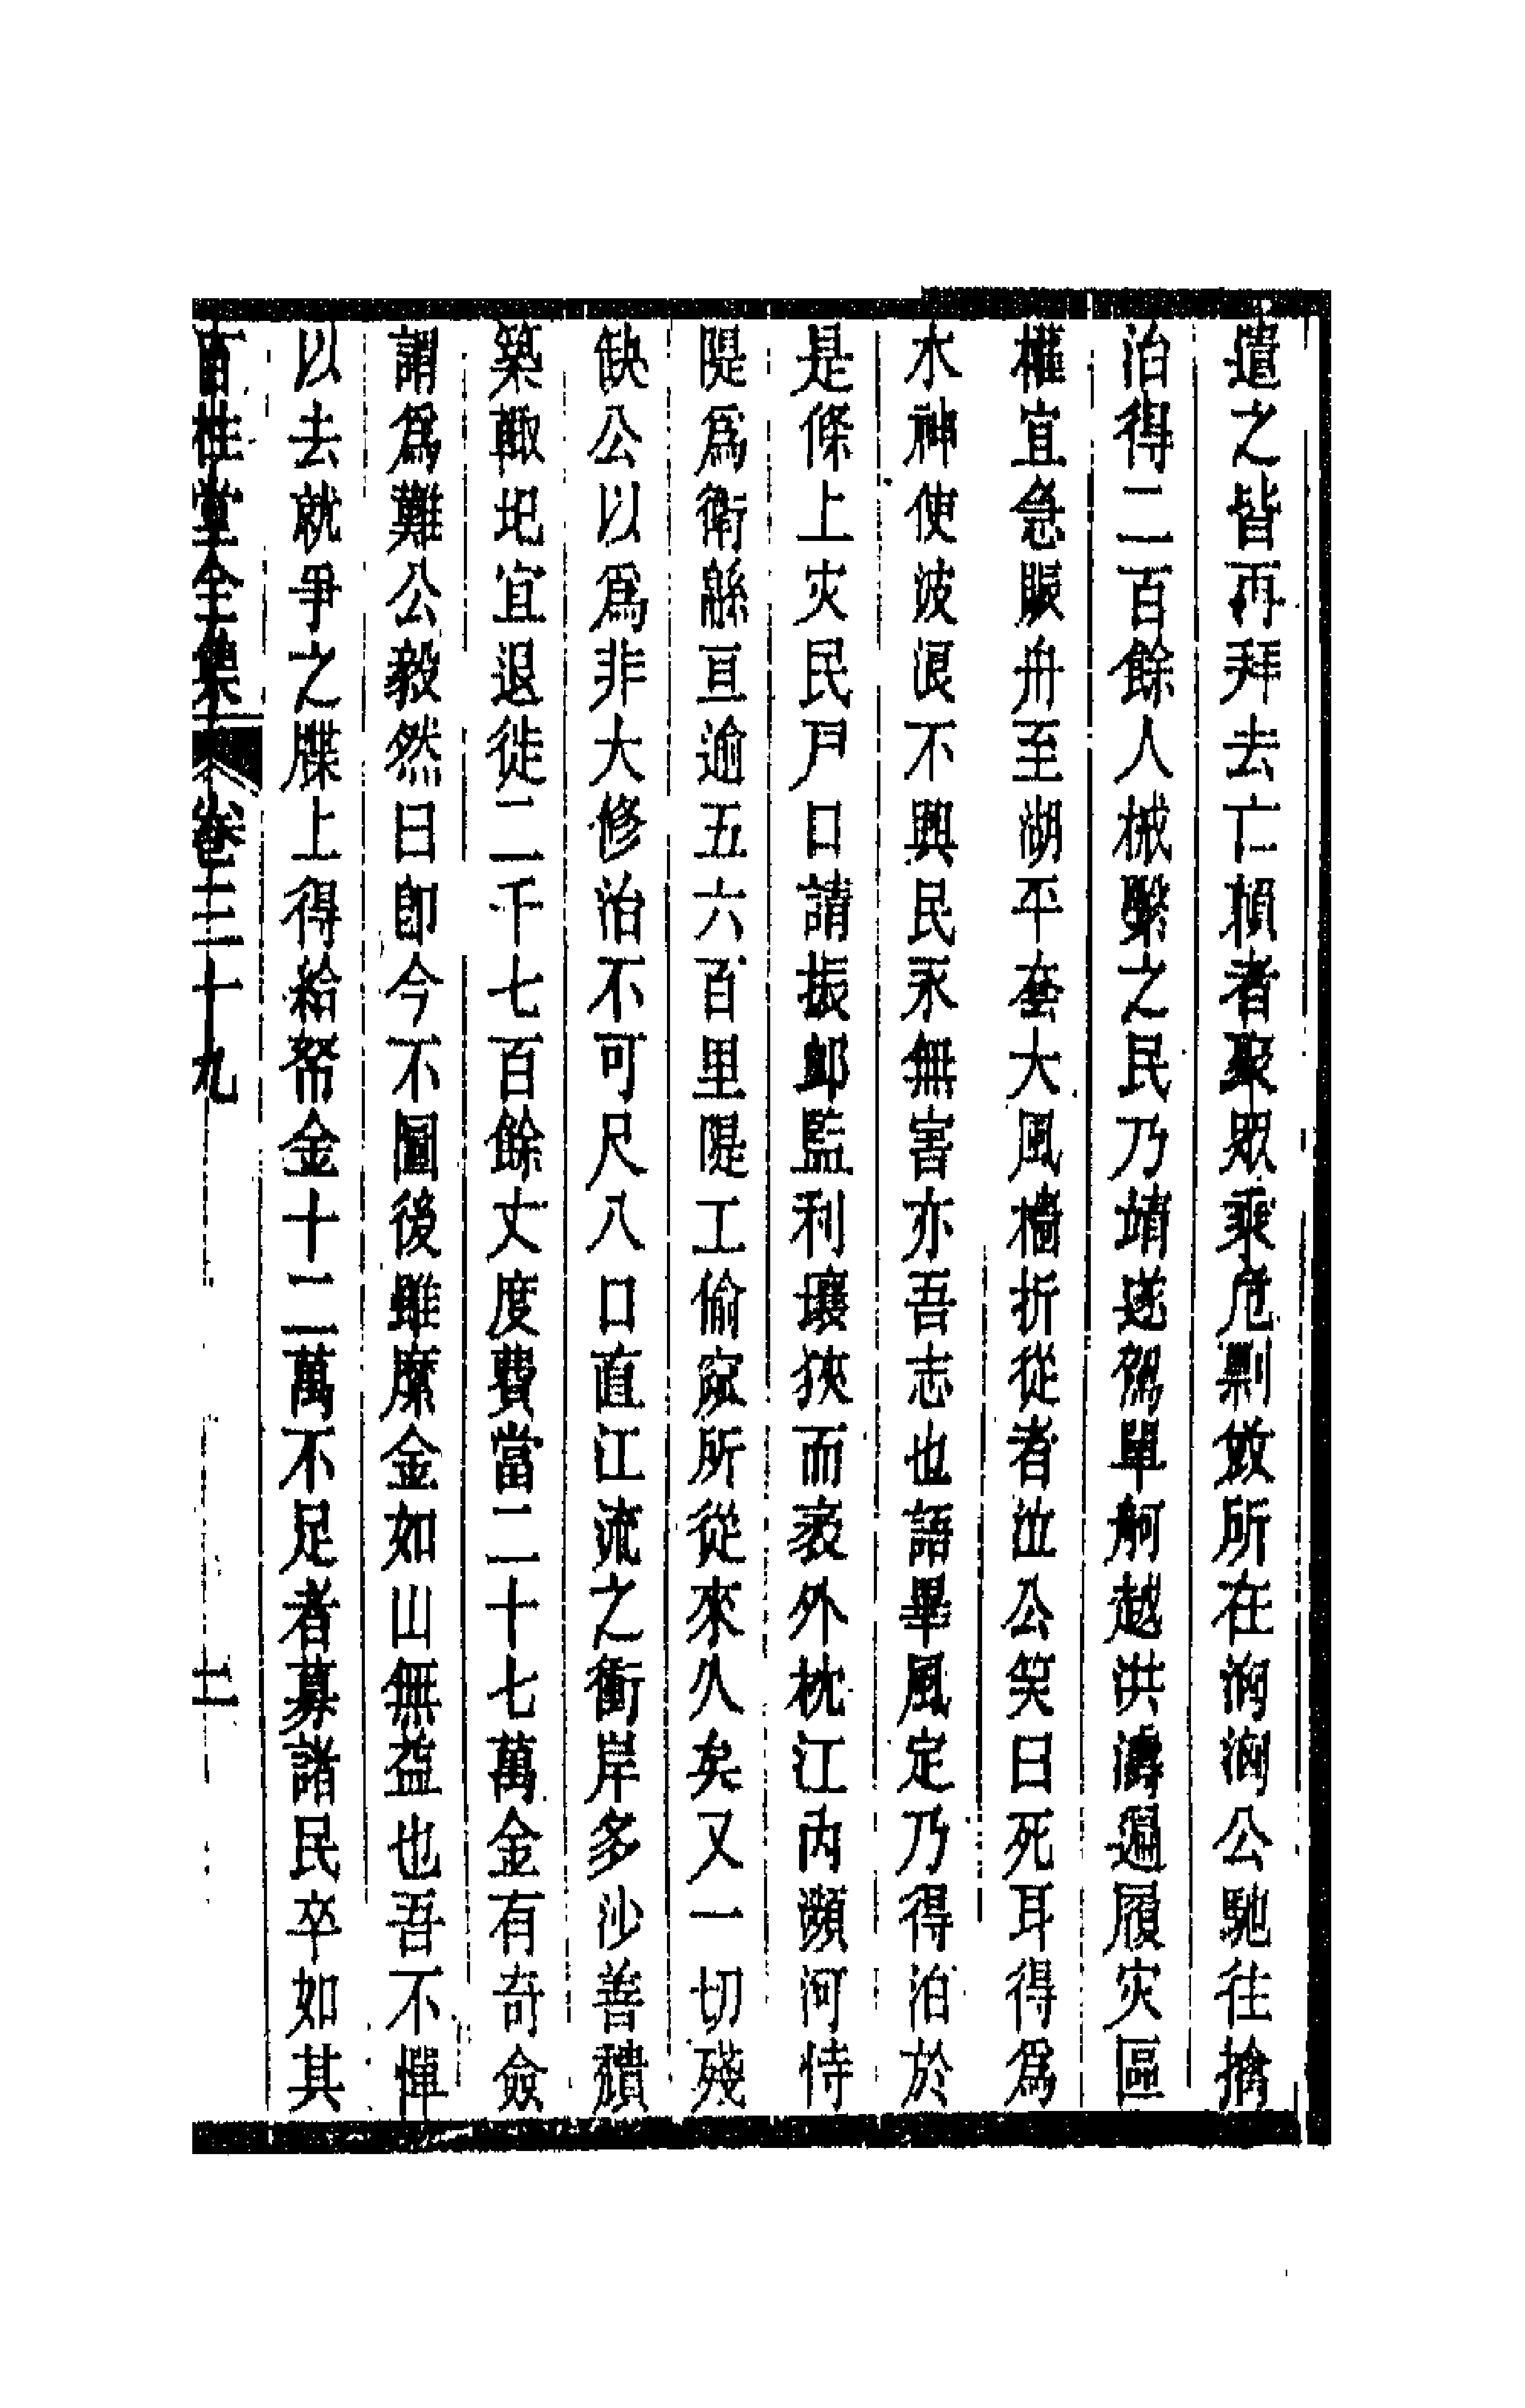 遣之皆再拜去亡賴者聚眾乘危剽敓所在洶洶公馳往擒
治得二百餘人械繫之民乃靖遂駕單舸越洪濤遍履灾區
權宜急賑舟至湖平夳大風檣折從者泣公笑曰死耳得爲
水神使波浪不興民永無害亦吾志也語畢風定乃得泊於
是條上灾民戸口請振卹監利壤狹而袤外枕江內瀕河恃
隄爲衛緜亘逾五六百里隄工偷窳所從來久矣又一切殘
缺公以爲非大修治不可尺八口直江流之衝岸多沙善穨
築輙圮宜退徙二千七百餘丈度費當二十七萬金有奇僉
謂爲難公毅然曰卽今不圖後雖縻金如山無益也吾不憚
以去就爭之牒上得給帑金十二萬不足者募諸民卒如其
百柱堂全集 卷三十九 三